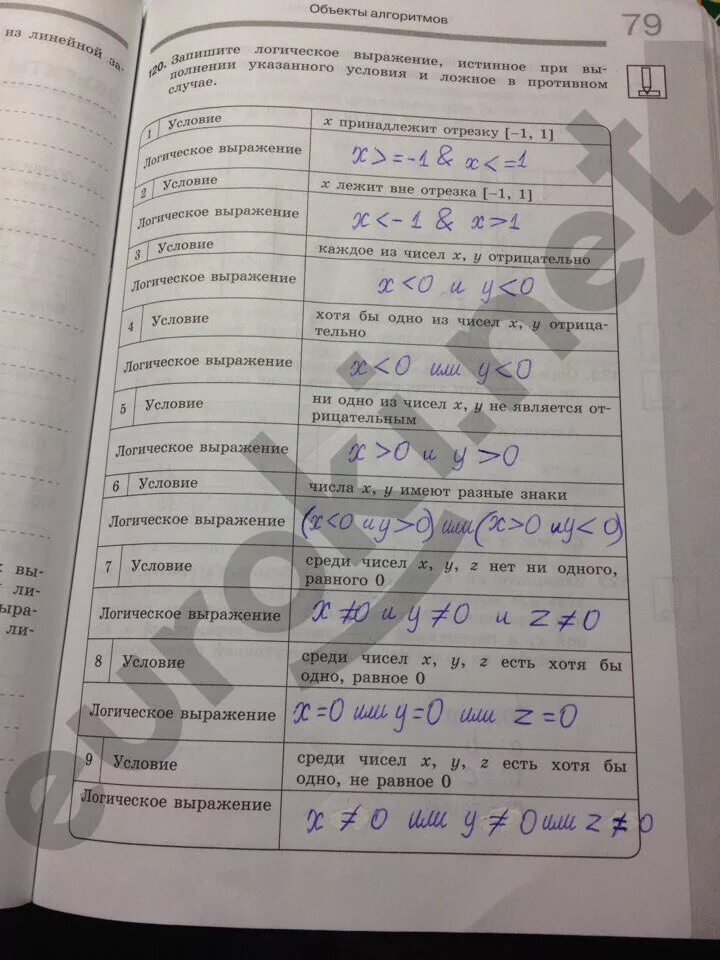 Объекты алгоритмов
79
из линейной за-
120. Запишите логическое выражение, истинное при вы-
полнении указанного условия и ложное в противном
случае.
1 Условие x принадлежит отрезку [–1, 1]
Логическое выражение x>=-1 & x<=1
2 Условие x лежит вне отрезка [–1, 1]
Логическое выражение x<-1 & x>1
3 Условие каждое из чисел x, y отрицательно
Логическое выражение x<0 и y<0
4 Условие хотя бы одно из чисел x, y отрица-
тельно
Логическое выражение x<0 или y<0
5 Условие ни одно из чисел x, y не является от-
рицательным
Логическое выражение x>0 и y>0
6 Условие числа x, y имеют разные знаки
Логическое выражение (x<0 и y>0) или (x>0 и y<0)
7 Условие среди чисел x, y, z нет ни одного,
равного 0
Логическое выражение x≠0 и y≠0 и z≠0
8 Условие среди чисел x, y, z есть хотя бы
одно, равное 0
Логическое выражение x=0 или y=0 или z=0
9 Условие среди чисел x, y, z есть хотя бы
одно, не равное 0
Логическое выражение x≠0 или y≠0 или z≠0
вы-
ли-
ыра-
ли-
euroki.net